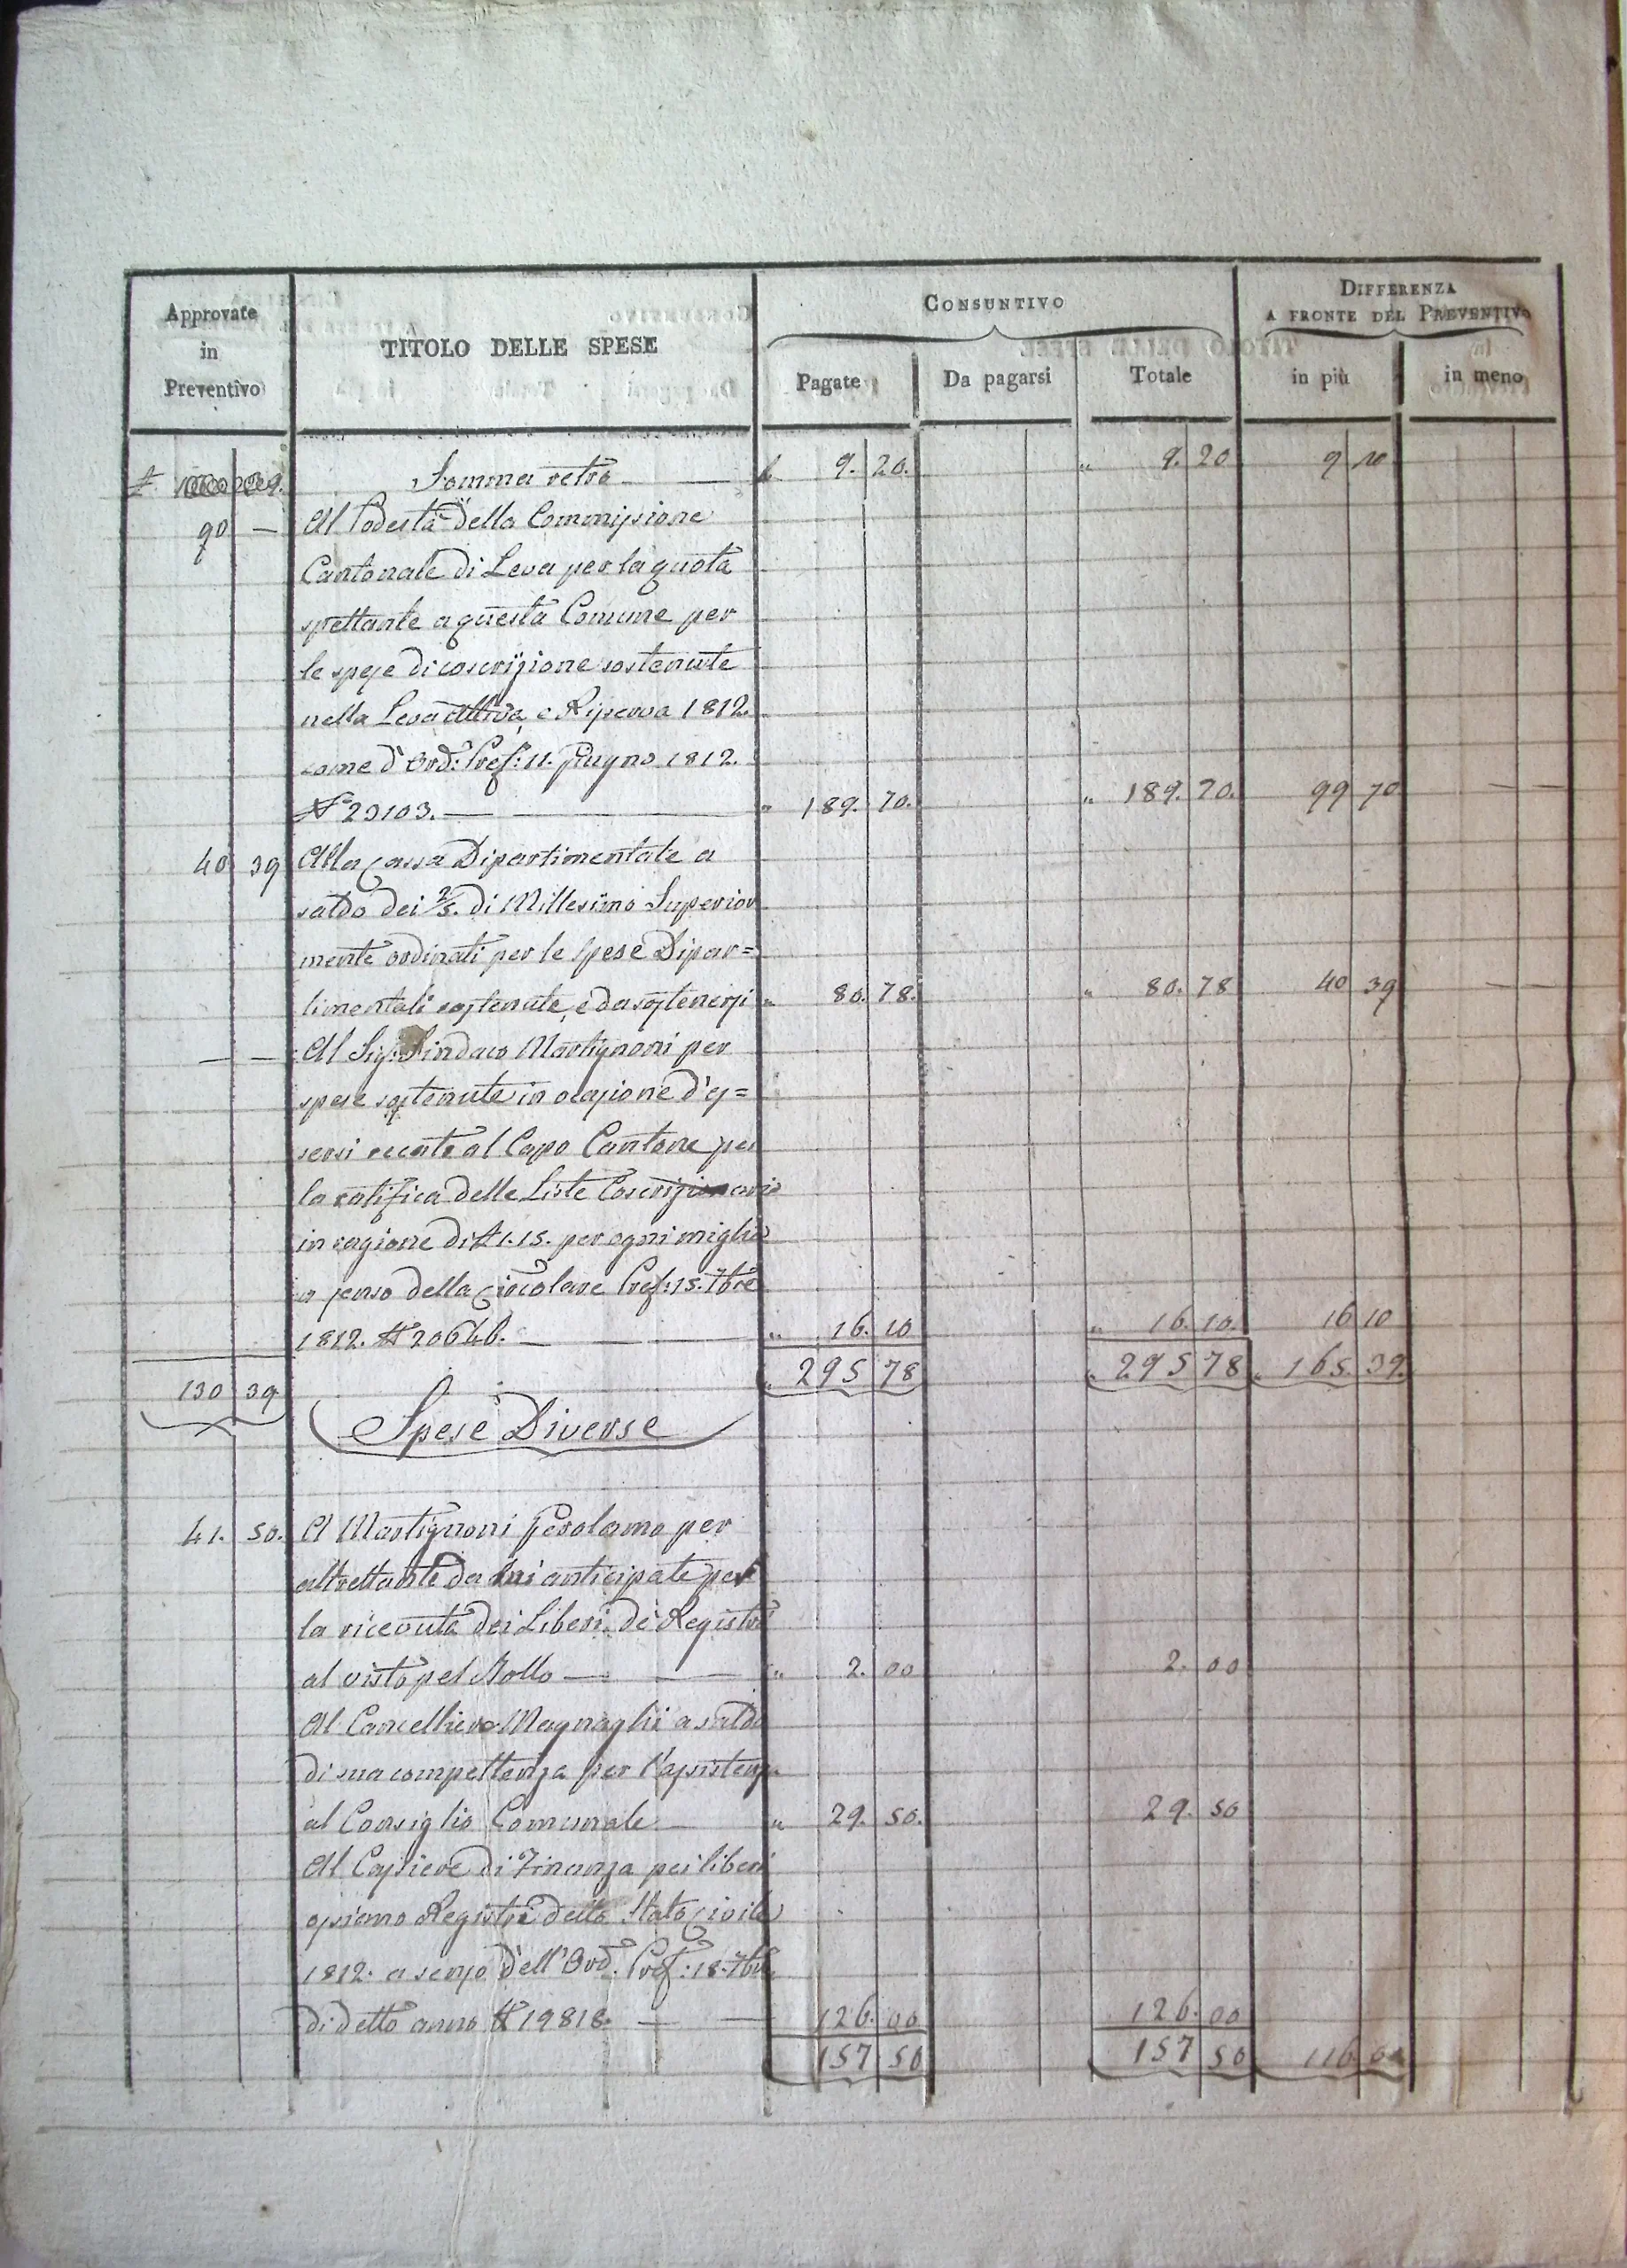 Approvate in Preventivo
TITOLO DELLE SPESE
CONSUNTIVO
DIFFERENZA
A FRONTE DEL PREVENTIVO
Pagate
Da pagarsi
Totale
in più
in meno
Somma retro — £ 9. 20. " 9. 20 9
90 — Al Podestà della Commissione
Cantonale di Leva per la quota
spettante a questa Comune per
le spese di coscrizione sostenute
nella Leva attiva, e Riserva 1812.
come d'Ord: Pref: 11. Giugno 1812.
N° 23103. — " 189. 70. " 189. 70. 99 70 —
40 39 Alla Cassa Dipartimentale a
saldo dei 2/5. di Millesimo Superior
mente ordinati per le Spese Dipar=
timentali sostenute, e da sostenersi " 80. 78. " 80. 78 40 39 —
— — Al Sig: Sindaco Martignoni per
spese sostenute in ocasione d'es=
sersi recato al Capo Cantone per
la ratifica delle Liste
in ragione di £ 1. 15. per ogni miglio
a senso della Circolare Pref: 15. 7bre
1812. N° 20646. — " 16. 10 " 16. 10. 16 10
130 39 " 295 78 " 295 78 " 165. 39.
Spese Diverse
41. 50. A Martignoni Gerolamo per
altrettante da lui anticipate per
la ricevuta dei Liberi de Registri
al visto pel Bollo — " 2. 00 2. 00
Al Cancelliere Magnaghi a saldo
di sua compettenza per l'assistenza
al Consiglio Comunale — " 29. 50. 29. 50
Al Cassiere di Finanza pei liberi
ossiano Registri dello Stato Civile
1812. a senso dell'Ord. Pref: 18. 7bre
di detto anno N° 19818. — 126. 00 126. 00
157 50 157 50 116 00